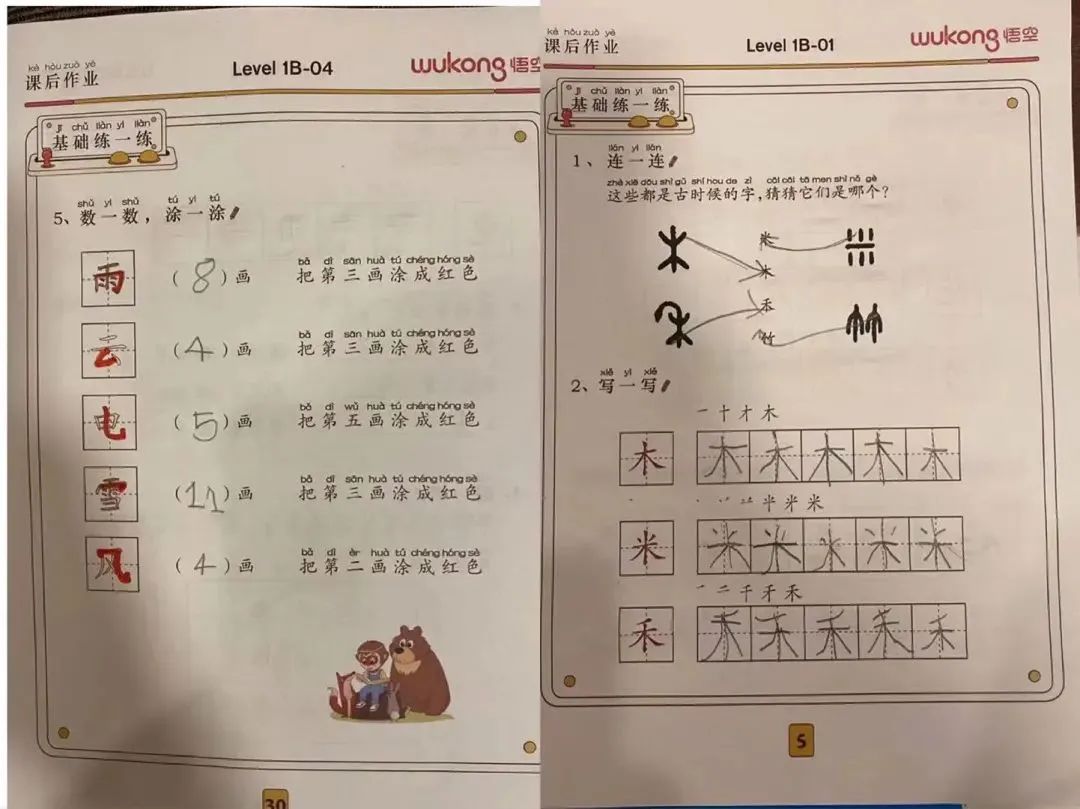 kè hòu zuò yè
课后作业
Level 1B-04
wukong 悟空
jī chǔ liàn yì liàn
基础练一练
shǔ yì shǔ tú yì tú
5、数一数，涂一涂
bǎ dì sān huà tú chéng hóng sè
雨 ( 8 ) 画 把第三画涂成红色
bǎ dì sān huà tú chéng hóng sè
云 ( 4 ) 画 把第三画涂成红色
bǎ dì wǔ huà tú chéng hóng sè
电 ( 5 ) 画 把第五画涂成红色
bǎ dì sān huà tú chéng hóng sè
雪 ( 11 ) 画 把第三画涂成红色
bǎ dì èr huà tú chéng hóng sè
风 ( 4 ) 画 把第二画涂成红色
30
kè hòu zuò yè
课后作业
Level 1B-01
wukong 悟空
jī chǔ liàn yì liàn
基础练一练
lián yì lián
1、连一连
zhè xiē dōu shì gǔ shí hou de zì cāi cāi tā men shì nǎ gè
这些都是古时候的字，猜猜它们是哪个？
米
木
禾
竹
xiě yì xiě
2、写一写
一 十 才 木
木 木 木 木 木 木
丶 丷 䒑 半 米 米
米 米 米 米 米 米
㇒ 二 千 禾 禾
禾 禾 禾 禾 禾 禾
5